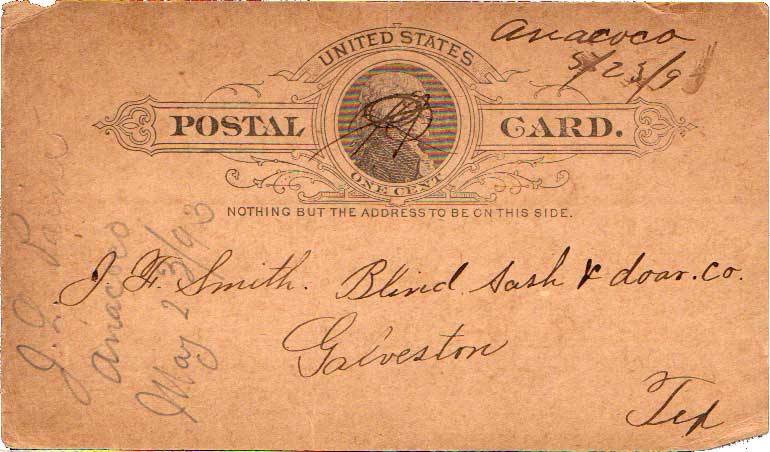 Anacoco
5/23/9
UNITED STATES
POSTAL CARD.
ONE CENT
NOTHING BUT THE ADDRESS TO BE ON THIS SIDE.
J. H. Smith. Blind Sash & doar. Co.
Galveston
Tex
J. L.
Anacoco
May 23/93